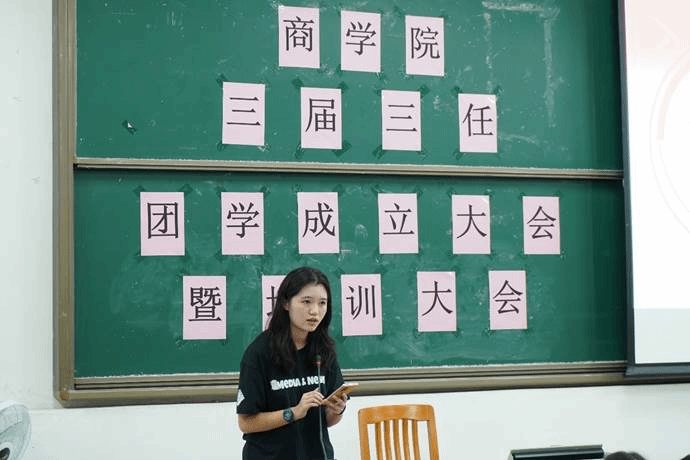 商学院
三届三任
团学成立大会
暨培训大会
MEDIA & NEW